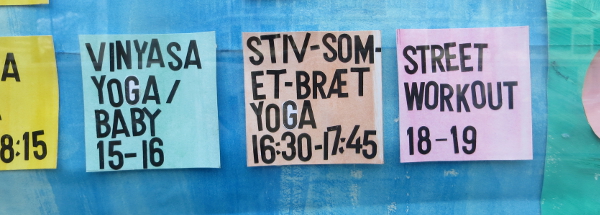 A
8:15
VINYASA
YOGA/
BABY
15-16
STIV-SOM-
ET-BRÆT
YOGA
16:30-17:45
STREET
WORKOUT
18-19